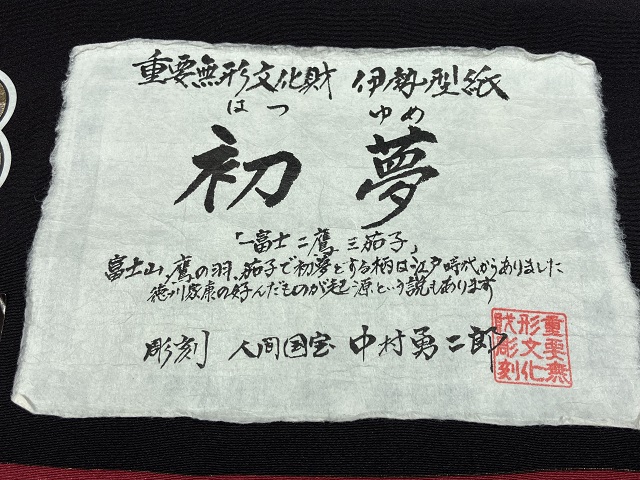 重要無形文化財 伊勢型紙
はつ ゆめ
初夢
「一富士二鷹三茄子」
富士山、鷹の羽、茄子で初夢とする柄は江戸時代からありました
徳川家康の好んだものが起源という説もあります
彫刻 人間国宝 中村勇二郎
重要無
形文化
財彫刻